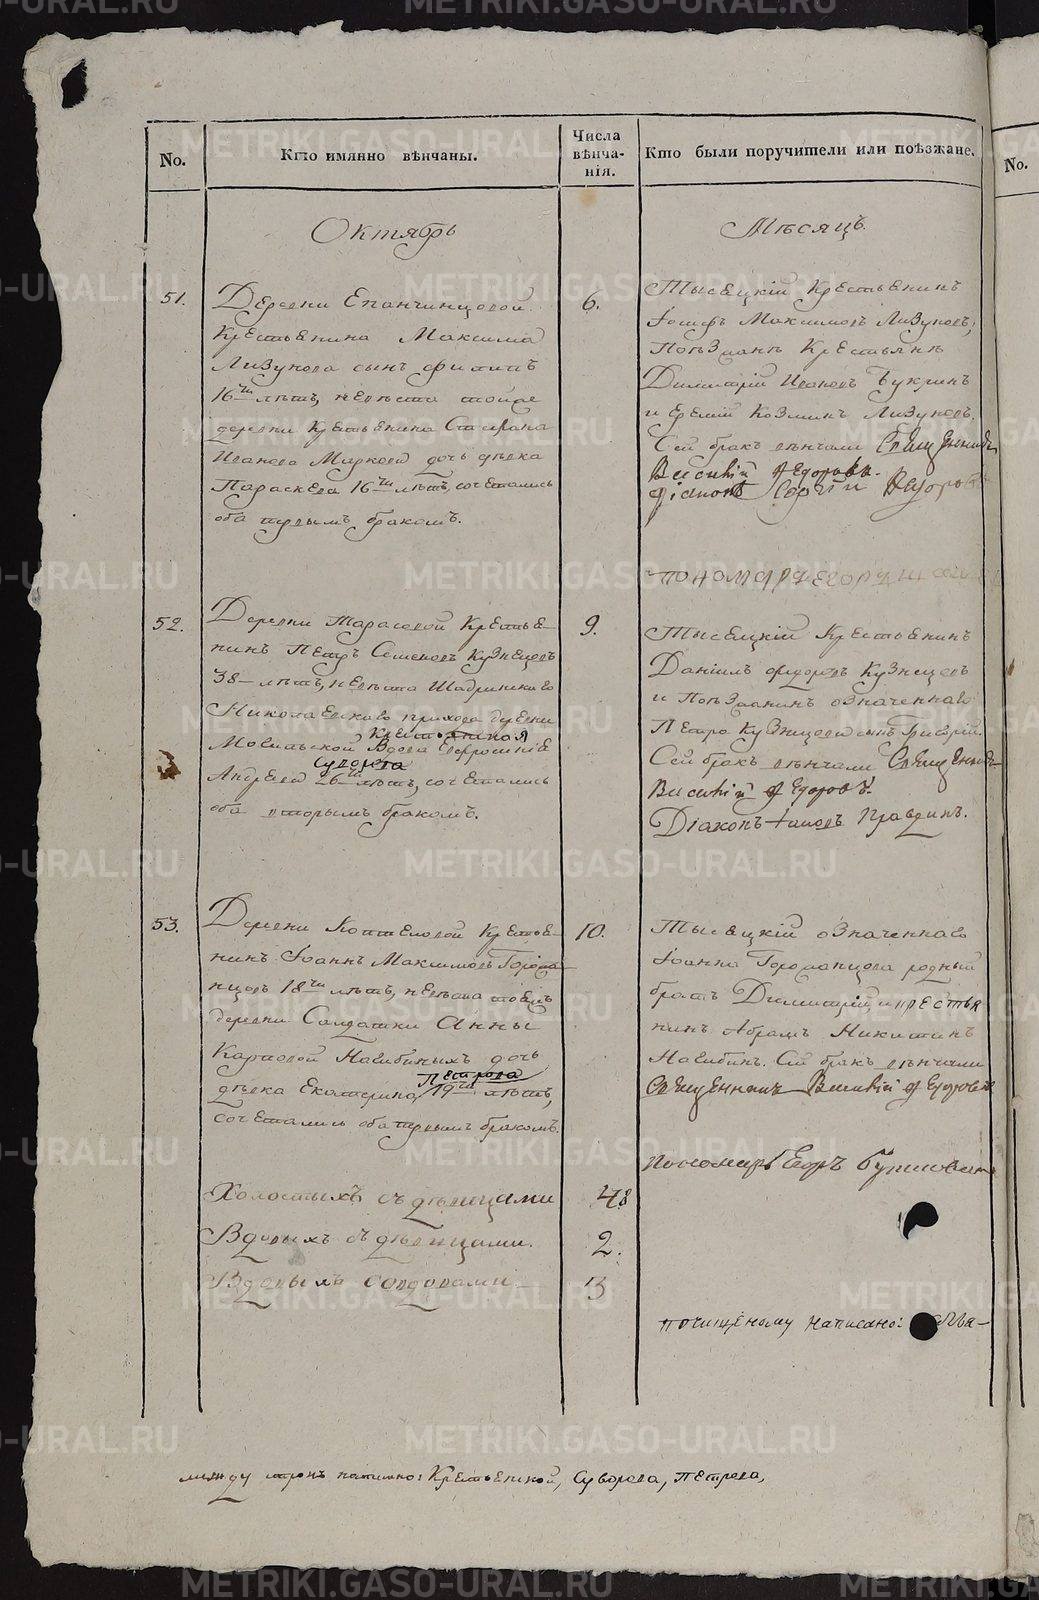 No.
Кто имянно вѣнчаны.
Числа вѣнча-
нія.
Кто были поручители или поѣзжане.
No.
Октябрь
Мѣсяцъ.
51.
Деревни Епанчинцовой
Крестьянина Максима
Лизунова сынъ Филипъ
16ти лѣтъ, невѣста тойже
деревни Крестьянина Стефана
Иванова Маркова дочь дѣвка
Параскева 16ти лѣтъ, сочетались
оба первымъ бракомъ.
6.
Тысецкій Крестьянинъ
Іосифъ Максимовъ Лизуновъ,
Поѣзжане Крестьяне
Димитрій Ивановъ Букринъ
и Еремій Козминъ Лизуновъ.
Сей бракъ вѣнчали Священникъ
Василий Федоровъ.
Діаконъ Сергій Федоровъ
Пономарь Егоръ
52.
Деревни Тарасовой Крестья-
нинъ Петръ Семеновъ Кузнецовъ
38 лѣтъ, невѣста Шадринскаго
Николаевскаго прихода деревни
Крестьянская
Могильской Вдова Евфросинія
Суворова
Андреева 26ти лѣтъ, сочетались
оба вторымъ бракомъ.
9.
Тысецкій Крестьянинъ
Даніилъ Федоровъ Кузнецовъ
и Поѣзжанинъ означеннаго
Петра Кузнецова сынъ Григорій
Сей бракъ вѣнчали Священникъ
Василий Федоровъ.
Діаконъ Іаковъ Правдинъ.
53.
Деревни Коптеловой Крестья-
нинъ Іоаннъ Максимовъ
18ти лѣтъ, невѣста тоежъ
деревни Солдатки Анны
Карповой Нагибиныхъ дочь
Петрова
дѣвка Екатерина 19ти лѣтъ,
сочетались оба первымъ бракомъ.
10.
Тысецкій означеннаго
Іоанна родный
братъ Димитрій, и крестья
нинъ Абрамъ Никитинъ
Нагибинъ. Сей бракъ вѣнчали
Священникъ Василий Федоровъ
Пономарь Егоръ
Холостыхъ съ дѣвицами
48
Вдовыхъ съ дѣвицами.
2.
Вдовыхъ со вдовами
3
почищеному написано:
между строкъ написано: Крестьянской, Суворова, Петрова,
METRIKI.GASO-URAL.RU